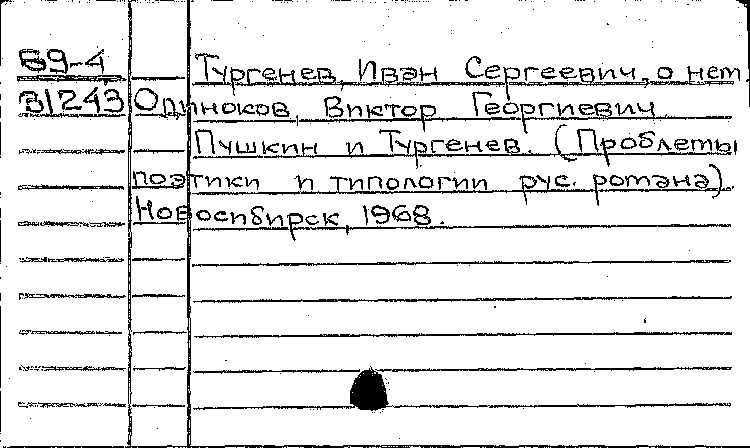 69-4 Тургенев, Иван Сергеевич, о нем.
31243 Одиноков, Виктор Георгиевич.
Пушкин и Тургенев. (Проблемы
поэтики и типологии рус. романа).
Новосибирск, 1968.